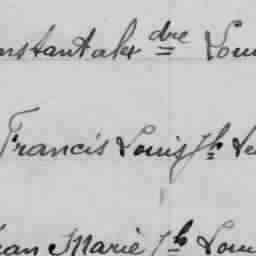 nstant alexdre Loui
Francis Louis Jh Le
ean Marie Jh Loui